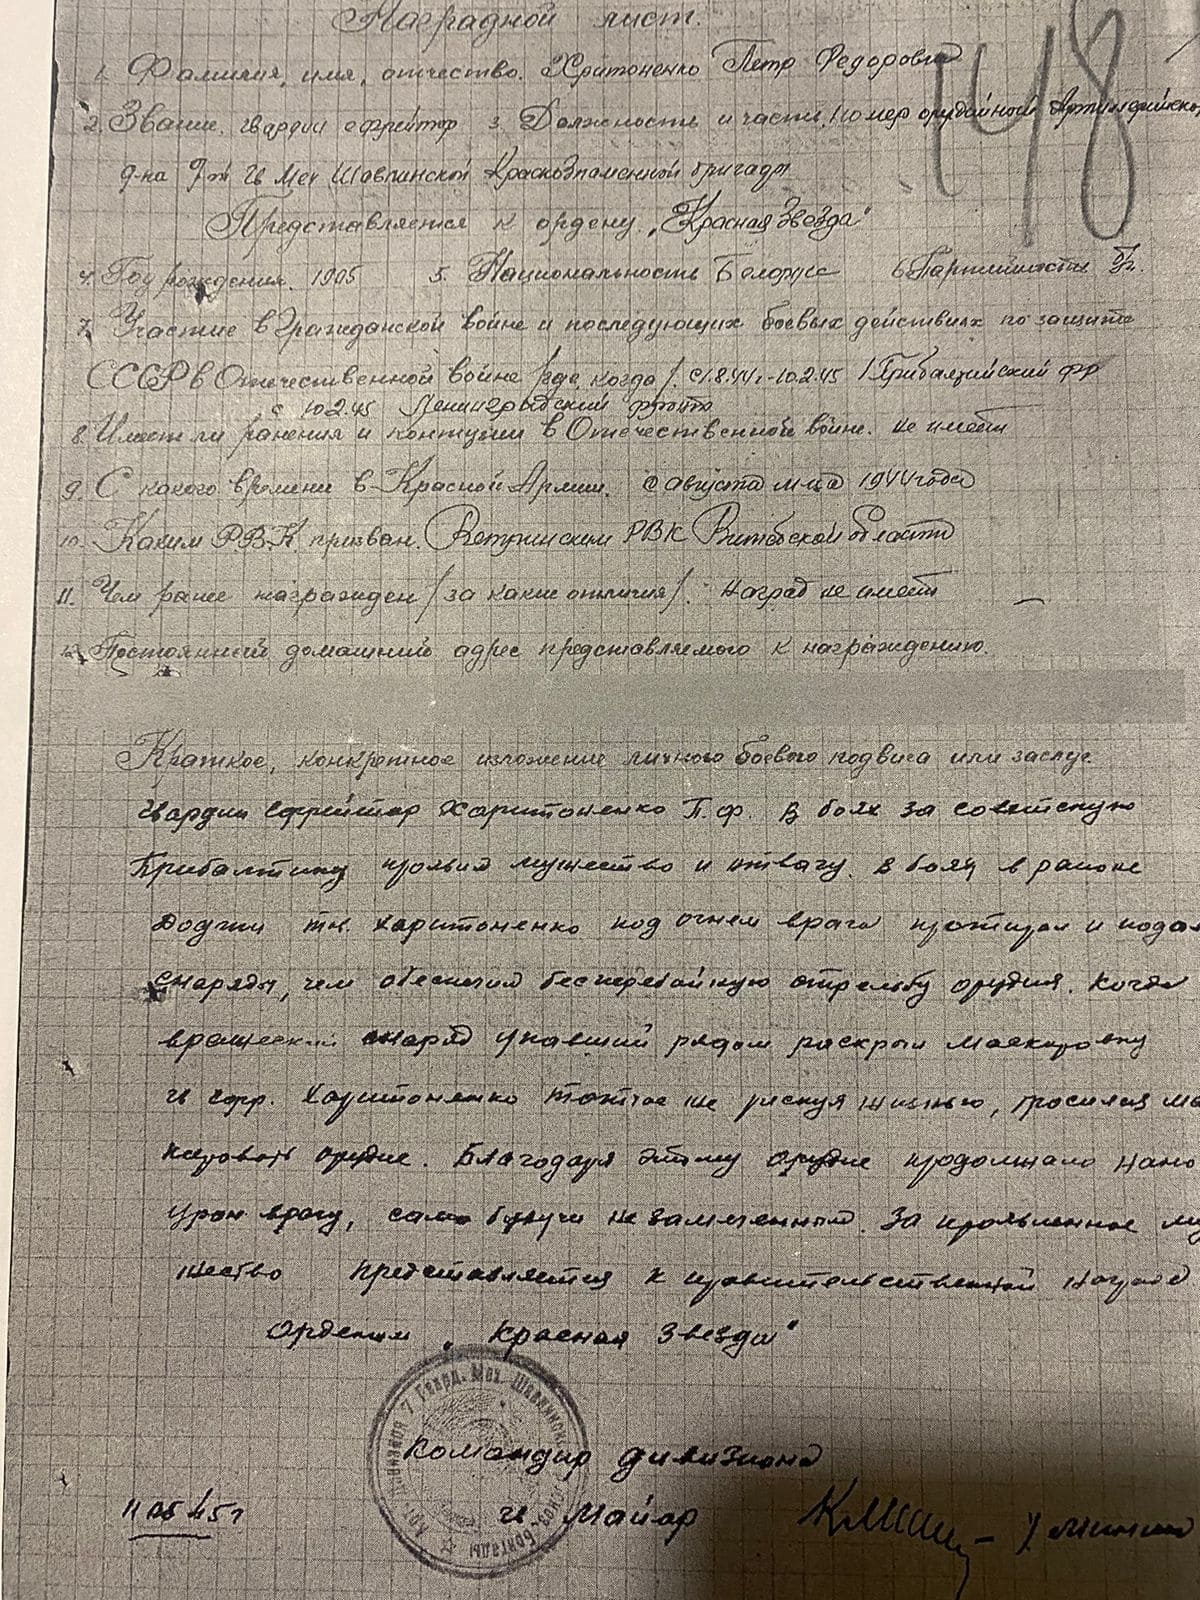 Наградной лист.
148
1. Фамилия, имя, отчество. Хритоненко Петр Федорович
2. Звание. гвардии ефрейтор 3. Должность и часть. Номер орудийной Артиллерийско
д-на 7й гв Мех Шавлинской Краснознаменной бригады
Представляется к ордену „Красная Звезда"
4. Год рождения. 1905 5. Национальность Белорусс 6. Партийность б/п.
7. Участие в Гражданской войне и последующих боевых действиях по защите
СССР в Отечественной войне /где, когда/. с 1.8.44г-10.2.45 1 Прибалтийский фр
с 10.2.45 Ленинградский фронт
8. Имеет ли ранения и контузии в Отечественной войне. не имеет
9. С какого времени в Красной Армии. с августа м-ца 1944 года
10. Каким Р.В.К. призван. РВК Витебской области
11. Чем ранее награжден /за какие отличия/. Наград не имеет
12. Постоянный домашний адрес представляемого к награждению.
Краткое, конкретное изложение личного боевого подвига или заслуг
Гвардии ефрейтор Харитоненко П.Ф. В боях за советскую
Прибалтику проявил мужество и отвагу. В боях в районе
тв. Харитоненко под огнем врага протирал и пода
снаряды, чем обеспечил бесперебойную стрельбу орудия. Когда
вражеский снаряд упавший рядом раскрыл маскировку
гв ефр. Харитоненко тотчас же рискуя жизнью, бросился ма
кировать орудие. Благодаря этому орудие продолжало нано
урон врагу, само будучи незамеченным. За проявленное му
жество представляется к правительственной награде
Орденом „Красная Звезда"
Арт. Дивизион 7 Гвард. Мех. Шавлинской бригады
Командир дивизиона
гв Майор
11 05 45г